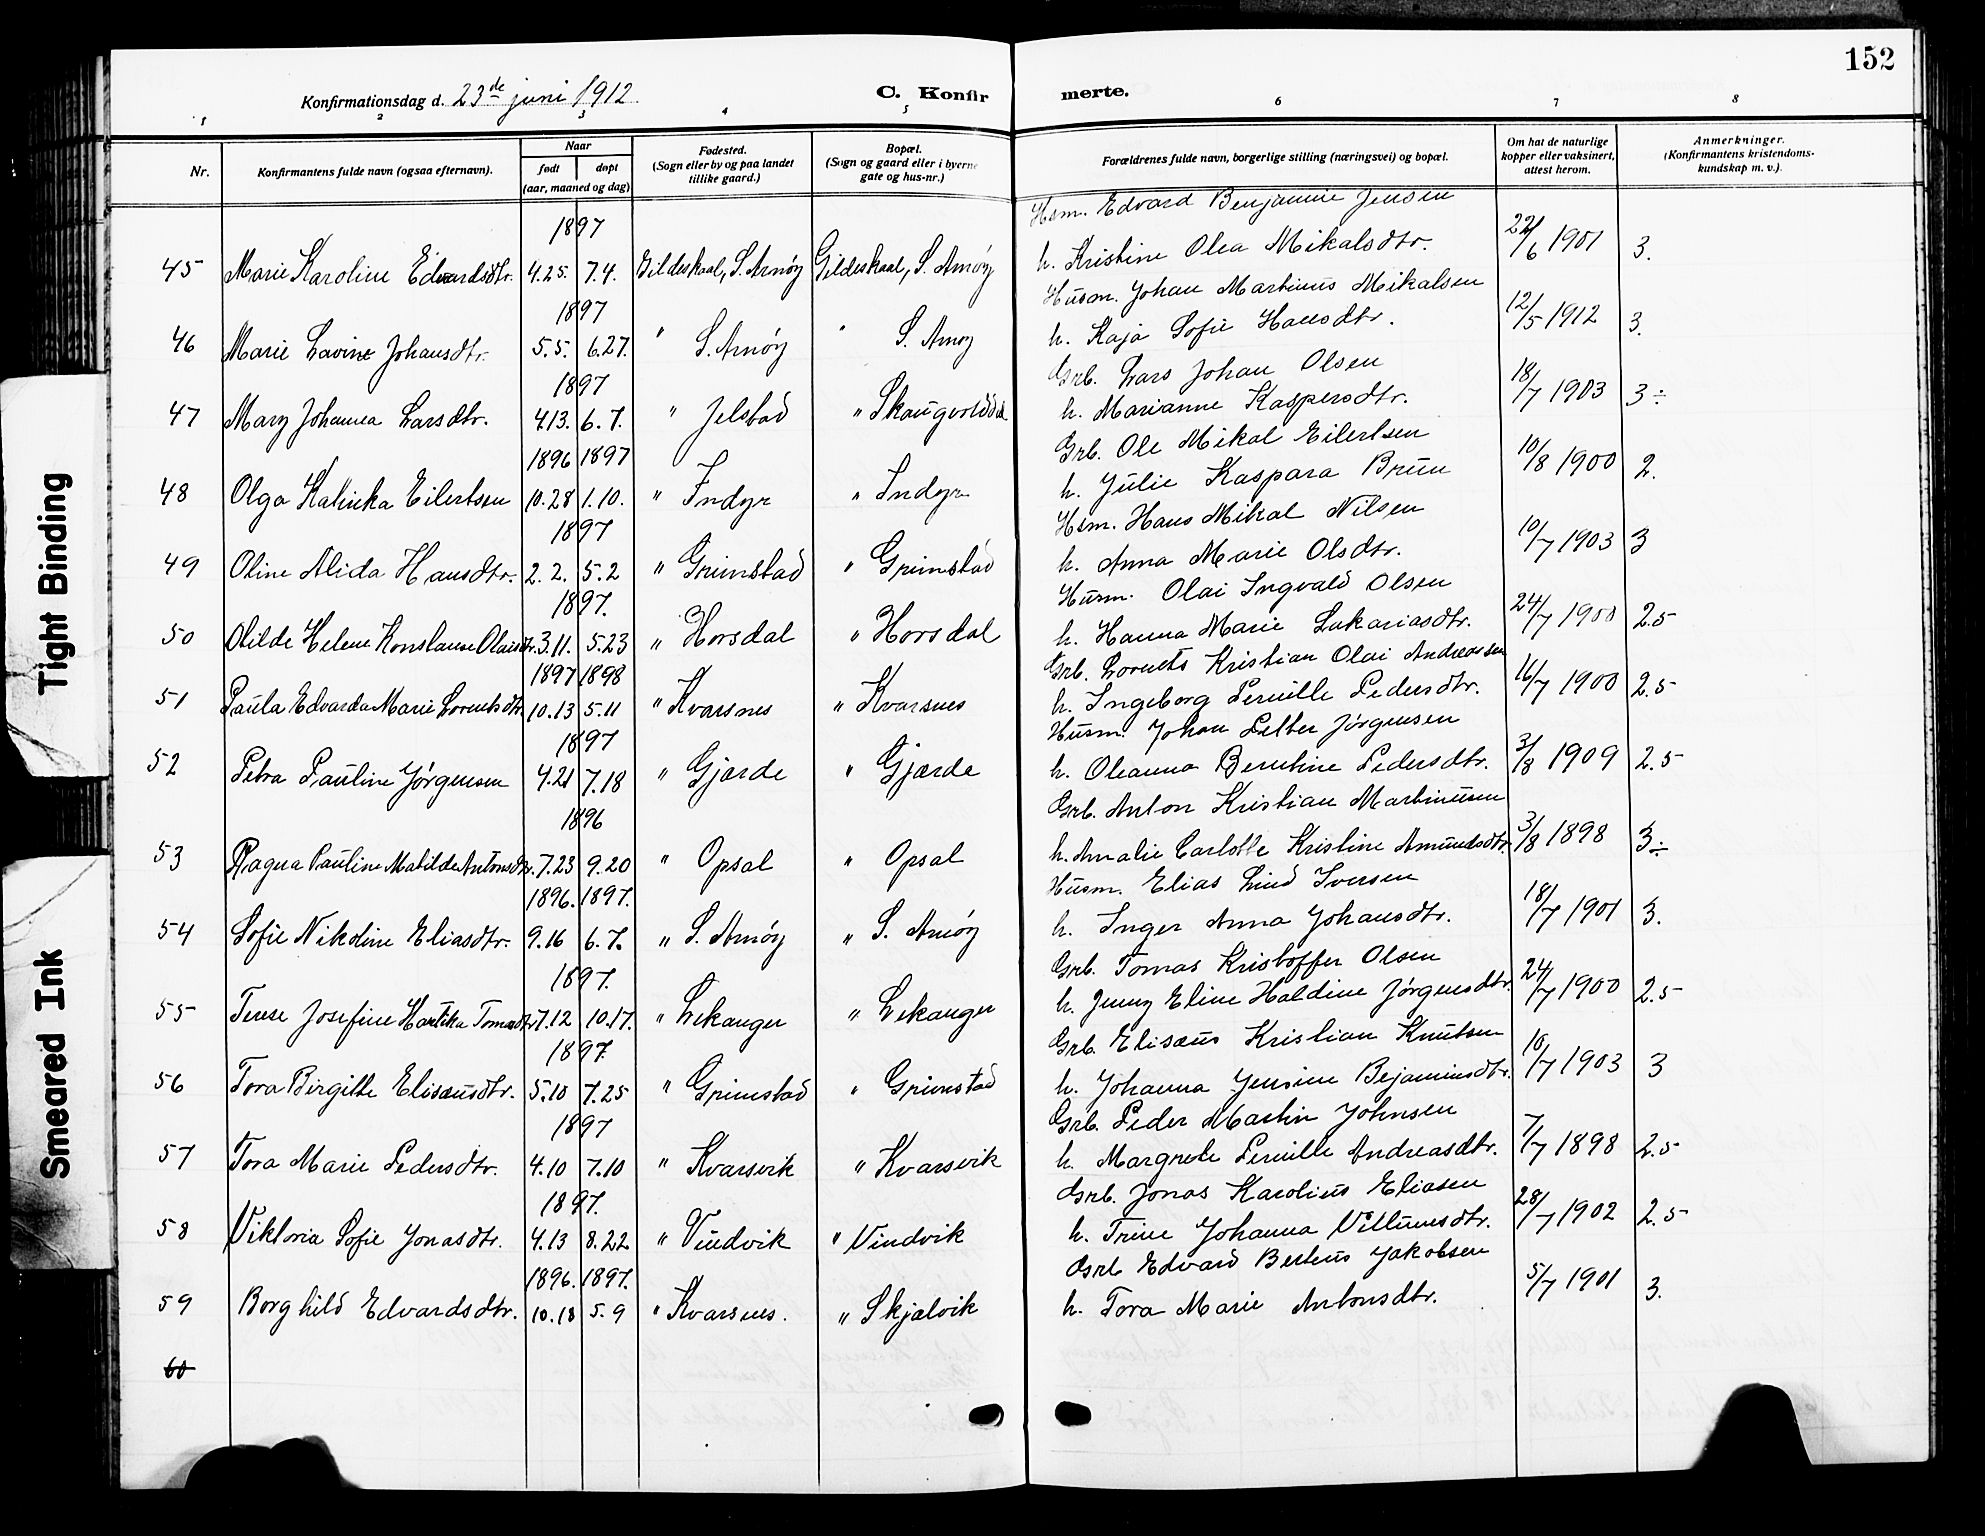 152
Konfirmationsdag d. 23de juni 1912.
C. Konfir merte.
1 2 3 4 5 6 7 8
Nr.
Konfirmantens fulde navn (ogsaa efternavn).
Naar
født døpt
(aar, maaned og dag)
Fødested.
(Sogn eller by og paa landet
tillike gaard.)
Bopæl.
(Sogn og gaard eller i byerne
gate og hus-nr.)
Forældrenes fulde navn, borgerlige stilling (næringsvei) og bopæl.
Om hat de naturlige
kopper eller vaksinert,
attest herom.
Anmerkninger.
(Konfirmantens kristendoms-
kundskap m. v.).
1897 Hsm. Edvard Benjamin Jensen
45 Marie Karoline Edvardsdtr. 4.25. 7.4. Gildeskaal, S. Arnøy Gildeskaal, S. Arnøy h. Kristine Olea Mikalsdtr. 22/6 1901 3.
1897 Husm. Johan Martinus Mikalsen
46 Marie Lavine Johansdtr. 5.5. 6.27. " S. Arnøy " S. Arnøy h. Kaja Sofie Hansdtr. 12/5 1912 3.
1897 Grb. Lars Johan Olsen
47 Mary Johanna Larsdtr. 4.13. 6.7. " Jelstad " h. Marianne Kaspersdtr. 18/7 1903 3÷
1896 1897 Grb. Ole Mikal Eilertsen
48 Olga Katinka Eilertsen 10.28 1.10. " Indyr " Indyr h. Julie Kaspara Bruun 10/8 1900 2.
1897 Hsm. Hans Mikal Nilsen
49 Oline Alida Hansdtr. 2.2. 5.2 " Grimstad " Grimstad h. Anna Marie Olsdtr. 10/7 1903 3
1897. Husm. Olai Ingvald Olsen
50 Olilde Helene Konstanse Olaisdtr. 3.11. 5.23 " Horsdal " Horsdal h. Hanna Marie Sakariasdtr. 24/7 1900 2.5
1897 1898 Grb. Lornts Kristian Olai Andreassen
51 Paula Edvarda Marie Lorntsdtr. 10.13 5.11 " Kvarsnes " Kvarsnes h. Ingeborg Pernille Pedersdtr. 16/7 1900 2.5
1897 Husm. Johan Petter Jørgensen
52 Petra Pauline Jørgensen 4.21 7.18 " Gjærde " Gjærde h. Oleanna Berntine Pedersdtr. 3/8 1909 2.5
1896 Grb. Anton Kristian Martinusen
53 Ragna Pauline Matilde Antonsdtr. 7.23 9.20 " Opsal " Opsal h. Amalie Carlotte Kristine Amundsdtr. 3/8 1898 3÷
1896. 1897. Husm. Elias Lind Iversen
54 Sofie Nikoline Eliasdtr. 9.16 6.7. " S. Arnøy " S. Arnøy h. Inger Anna Johansdtr. 18/7 1901 3.
1897. Grb. Tomas Kristoffer Olsen
55 Terese Josefine Hartika Tomasdtr. 7.12 10.17. " Lekanger " Lekanger h. Jenny Eline Haldine Jørgensdtr. 24/7 1900 2.5
1897. Grb. Elisæus Kristian Knutsen
56 Tora Birgitte Elisæusdtr. 5.10 7.25 " Grimstad " Grimstad h. Johanna Jensine Bejaminsdtr. 10/7 1903 3
1897 Grb. Peder Martin Johnsen
57 Tora Marie Pedersdtr. 4.10 7.10 " Kvarsvik " Kvarsvik h. Margrete Pernille Andreasdtr. 7/7 1898 2.5
1897. Grb. Jonas Karolius Eliasen
58 Viktoria Sofie Jonasdtr. 4.13 8.22 " Vindvik " Vindvik h. Trine Johanna Villumsdtr. 28/7 1902 2.5
1896. 1897. Grb Edvard Berteus Jakobsen
59 Borghild Edvardsdtr. 10.18 5.9 " Kvarsnes. " Skjælvik h. Tora Marie Antonsdtr. 5/7 1901 3.
60
Tight Binding
Smeared Ink